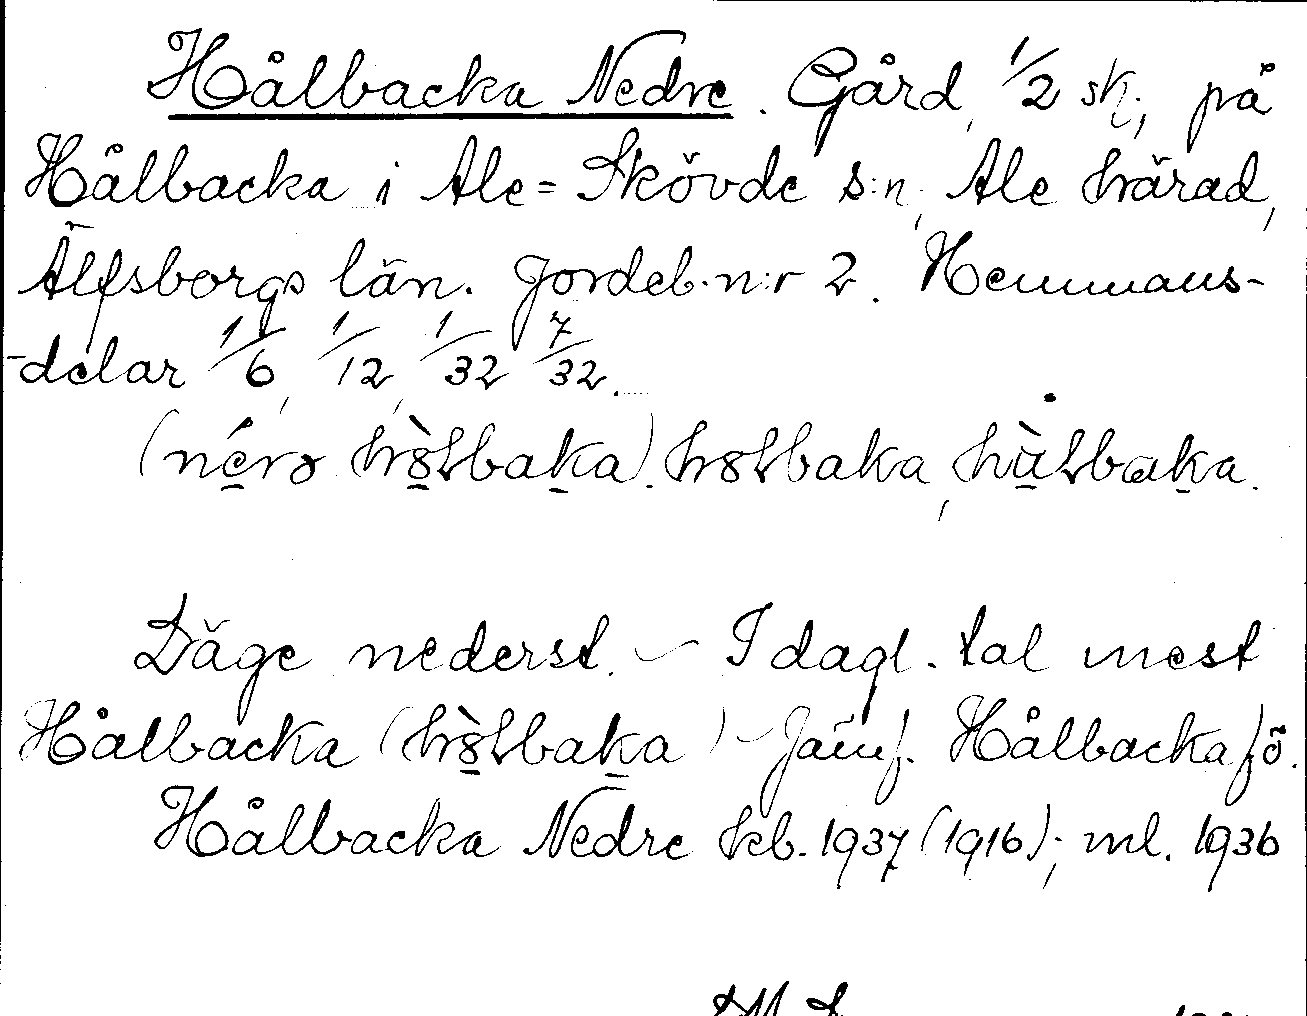 Hålbacka Nedre. Gård, 1/2 sk; på
Hålbacka i Ale=Skövde s:n, Ale härad,
Älfsborgs län. Jordeb. n:r 2. Hemmans-
-delar 1/6, 1/12, 1/32 7/32.
(nérə hòlbaka). holbaka, hùlbaka.
Läge nederst. – I dagl. tal mest
Hålbacka (hòlbaka) – Jämf. Hålbacka fö.
Hålbacka Nedre kb. 1937 (1916); ml. 1936